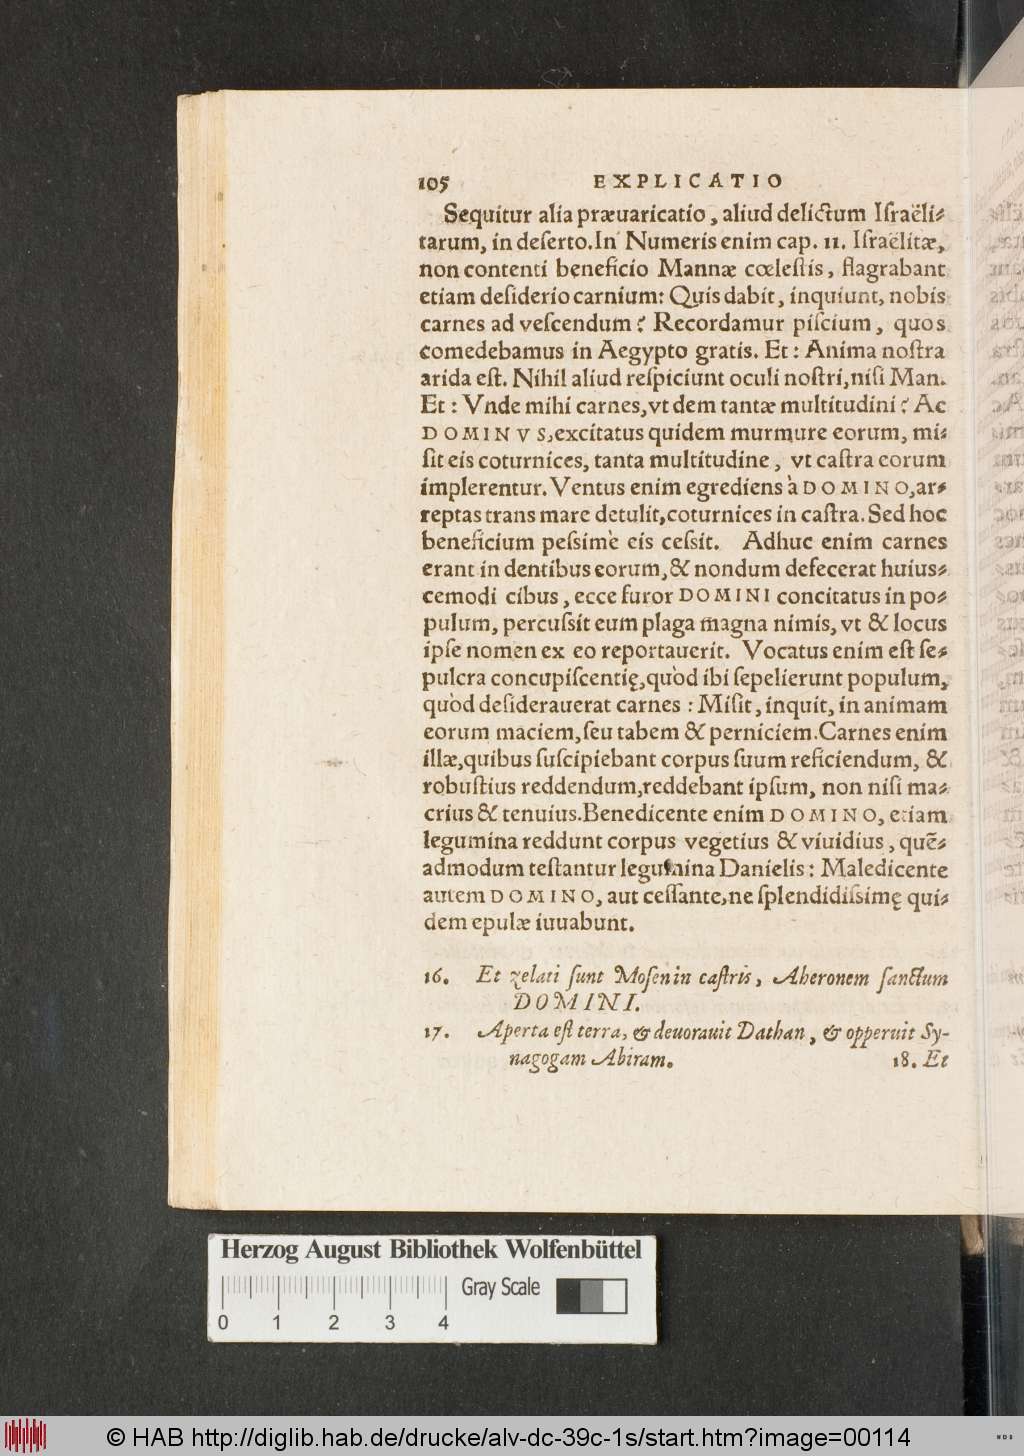 105 EXPLICATIO
Sequitur alia præuaricatio, aliud delictum Iſraëli-
tarum, in deſerto. In Numeris enim cap. 11. Iſraëlitæ,
non contenti beneficio Mannæ cœleſtis, flagrabant
etiam deſiderio carnium: Quis dabit, inquiunt, nobis
carnes ad veſcendum? Recordamur piſcium, quos
comedebamus in Aegypto gratis. Et: Anima noſtra
arida eſt. Nihil aliud reſpiciunt oculi noſtri, niſi Man.
Et: Vnde mihi carnes, vt dem tantæ multitudini? Ac
DOMINVS, excitatus quidem murmure eorum, mi-
ſit eis coturnices, tanta multitudine, vt caſtra eorum
implerentur. Ventus enim egrediens à DOMINO, ar-
reptas trans mare detulit, coturnices in caſtra. Sed hoc
beneficium peſsimè eis ceſsit. Adhuc enim carnes
erant in dentibus eorum, & nondum defecerat huius-
cemodi cibus, ecce furor DOMINI concitatus in po-
pulum, percuſsit eum plaga magna nimis, vt & locus
ipſe nomen ex eo reportauerit. Vocatus enim eſt ſe-
pulcra concupiſcentię, quòd ibi ſepelierunt populum,
quòd deſiderauerat carnes: Miſit, inquit, in animam
eorum maciem, ſeu tabem & perniciem. Carnes enim
illæ, quibus ſuſcipiebant corpus ſuum reficiendum, &
robuſtius reddendum, reddebant ipſum, non niſi ma-
crius & tenuius. Benedicente enim DOMINO, etiam
legumina reddunt corpus vegetius & viuidius, quẽ-
admodum teſtantur legumina Danielis: Maledicente
autem DOMINO, aut ceſſante, ne ſplendidiſsimę qui-
dem epulæ iuuabunt.
16. Et zelati ſunt Moſen in caſtris, Aheronem ſanctum
DOMINI.
17. Aperta eſt terra, & deuorauit Dathan, & opperuit Sy-
nagogam Abiram. 18. Et
Herzog August Bibliothek Wolfenbüttel
Gray Scale
0 1 2 3 4
© HAB http://diglib.hab.de/drucke/alv-dc-39c-1s/start.htm?image=00114